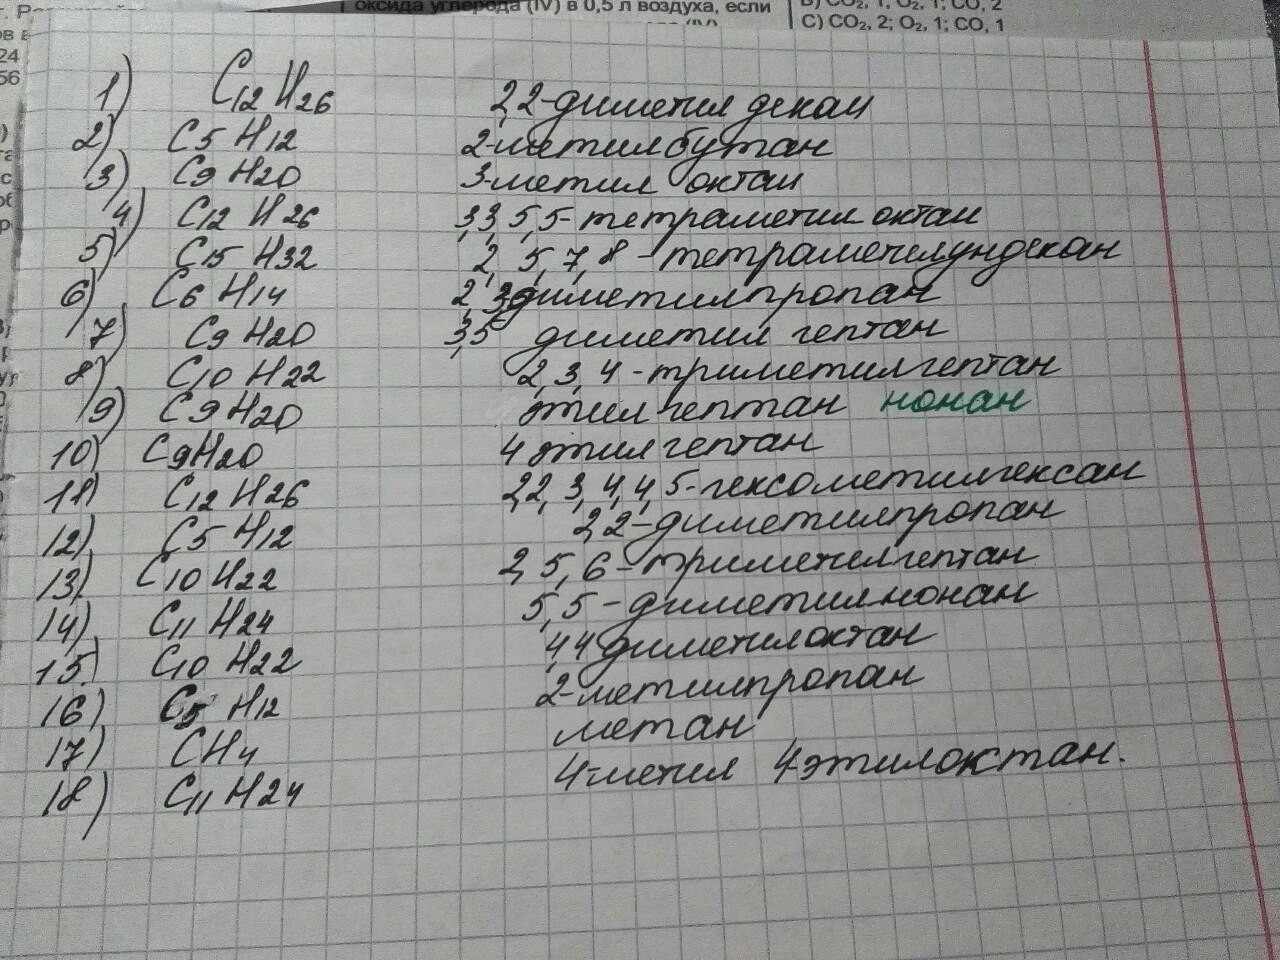 оксида углерода (IV) в 0,5 л воздуха, если
C) CO₂, 2; O₂, 1; CO, 1
1) C12 H26 2,2-диметил декан
2) C5 H12 2-метилбутан
3) C9 H20 3-метил октан
4) C12 H26 3,3,5,5-тетраметил октан
5) C15 H32 2, 5, 7, 8 - тетраметилундекан
6) C6 H14 2, 3диметилпропан
7) C9 H20 3,5 диметил гептан
8) C10 H22 2, 3, 4 - триметилгептан
9) C9 H20 этил гептан нонан
10) C9H20 4 этилгептан
11) C12 H26 2,2, 3, 4,4 5-гексометилгексан
12) C5 H12 2,2-диметилпропан
13) C10 H22 2, 5, 6 - триметилгептан
14) C11 H24 5,5 - диметилнонан
15.) C10 H22 4,4 диметилоктан
16) C5 H12 2-метилпропан
17) CH4 метан
18) C11 H24 4-метил 4-этилоктан.